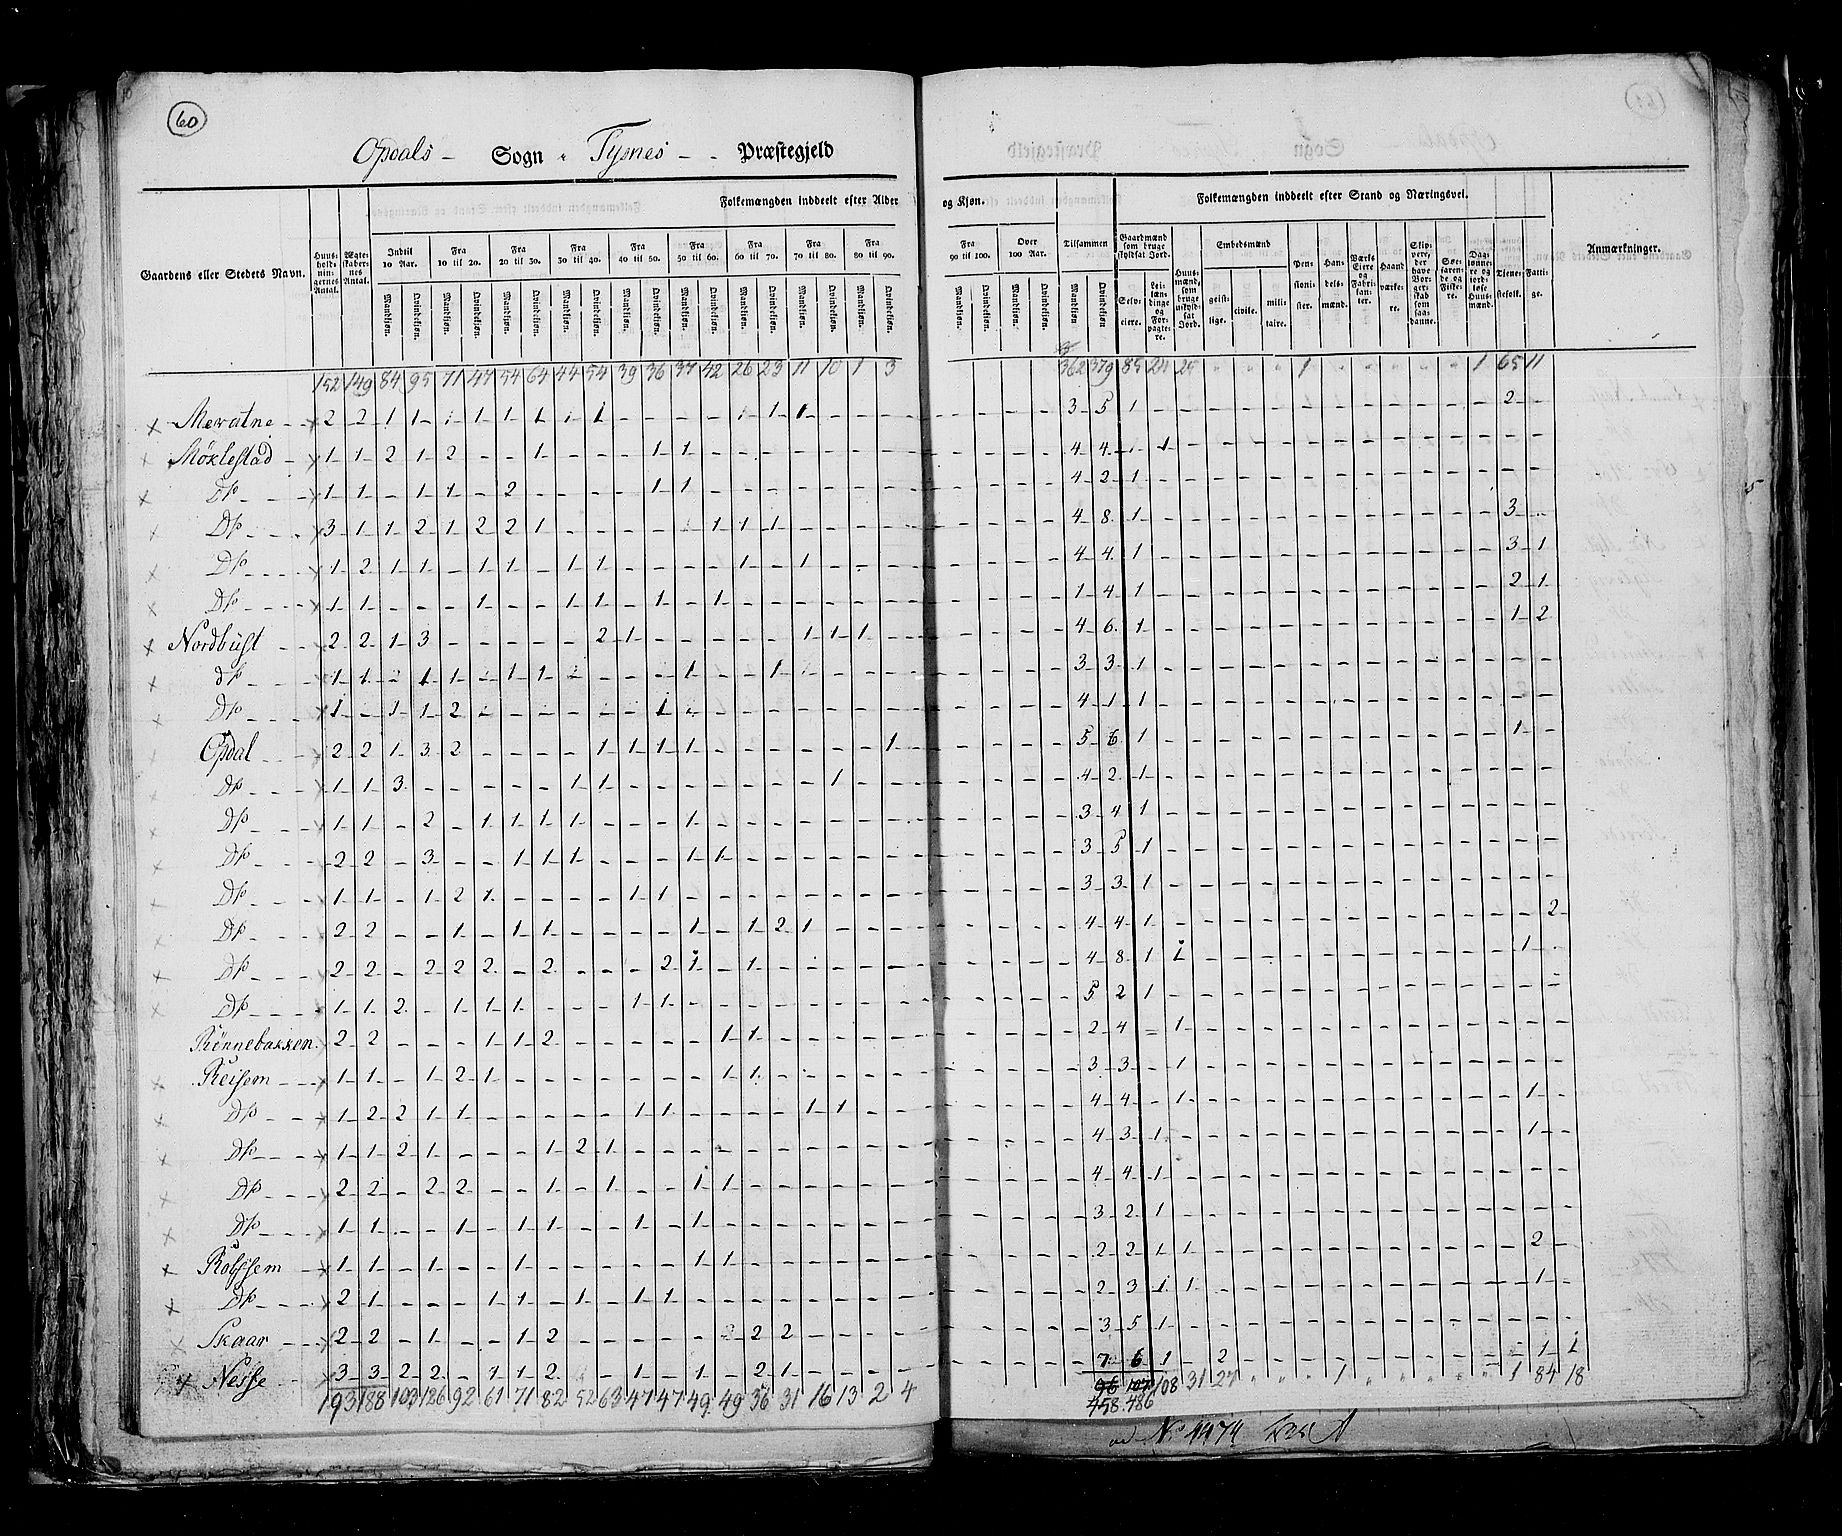 60
Opdals Sogn i Tysnes Præstegjeld
Gaardens eller Stedets Navn.
Huus-holdnin-gernes Antal.
Ægte-skaber-nes Antal.
Folkemængden inddeelt efter Alder og Kjøn.
Indtil 10 Aar. Fra 10 til 20. Fra 20 til 30. Fra 30 til 40. Fra 40 til 50. Fra 50 til 60. Fra 60 til 70. Fra 70 til 80. Fra 80 til 90. Fra 90 til 100. Over 100 Aar. Tilsammen
Mandkjøn. Qvindekjøn.
Folkemængden inddeelt efter Stand og Næringsvei.
Gaardmænd som bruge skyldsat Jord.
Selv-eiere. Lei-læn-dinge og For-pagte-re.
Huus-mænd, som bruge uskyld-sat Jord.
Embedsmænd
geist-lige. civile. mili-taire.
Pen-sioni-ster.
Han-dels-mænd.
Værks Eiere og Fabri-kan-ter.
Haand værke-re.
Søe-faren-de og Fiske-re.
Tjene-stefolk.
Fatti-ge.
Anmærkninger.
152 149 84 95 71 47 54 64 44 54 39 36 37 42 26 23 11 10 1 3 362 379 85 24 25 1 1 65 11
Meratne 2 2 1 1 1 1 1 1 1 1 1 1 1 3 5 1 2
Møklestad 1 1 2 1 2 1 1 1 4 4 1 1
Do 1 1 1 1 2 1 1 4 2 1
Do 3 1 1 2 1 2 2 1 1 1 1 4 8 1 3
Do 1 2 1 1 1 1 1 1 1 1 4 4 1 3 1
Do 1 1 1 1 1 1 1 1 4 1 2 1
Nordbust 2 2 1 3 2 1 1 1 1 4 6 1 1 2
do 1 1 2 1 1 1 1 1 1 3 3 1
Do 1 1 1 2 1 4 1 1
Opdal 2 2 1 3 2 1 1 1 1 1 5 6 1 1
Do 1 1 3 1 1 1 4 2 1
Do 1 1 2 1 1 1 1 1 3 4 1
Do 2 2 3 1 1 1 1 1 3 5 1
Do 1 1 1 2 1 1 1 3 3 1
Do 2 2 1 1 1 1 1 2 1 4 4 1 2
Do 2 2 2 2 2 2 2 1 1 4 8 1 1 1
Do 1 1 2 1 1 1 1 1 5 2 1
Rennebakken 2 2 1 1 2 1 1 2 4 1
Reisem 1 1 1 2 1 1 1 3 3 1
Do 1 2 2 1 1 1 1 1 1 4 4 1 1
Do 1 1 2 1 1 2 1 4 3 1 1
Do 2 2 2 2 1 1 1 1 4 4 1
Do 1 1 1 1 1 1 1 3 2 1
Rolfsem 1 1 1 1 1 1 2 2 1 1 2
Do 2 1 1 1 1 1 1 2 3 1 1 1
Skaar 2 2 1 1 2 2 2 3 5 1
Nesse 3 3 2 2 1 1 2 1 1 2 1 7 6 1 2 1 1
193 188 103 126 92 61 71 82 52 63 47 47 49 49 36 31 16 13 2 4 96 107 108 31 27 1 1 84 18
458 486
No 1474